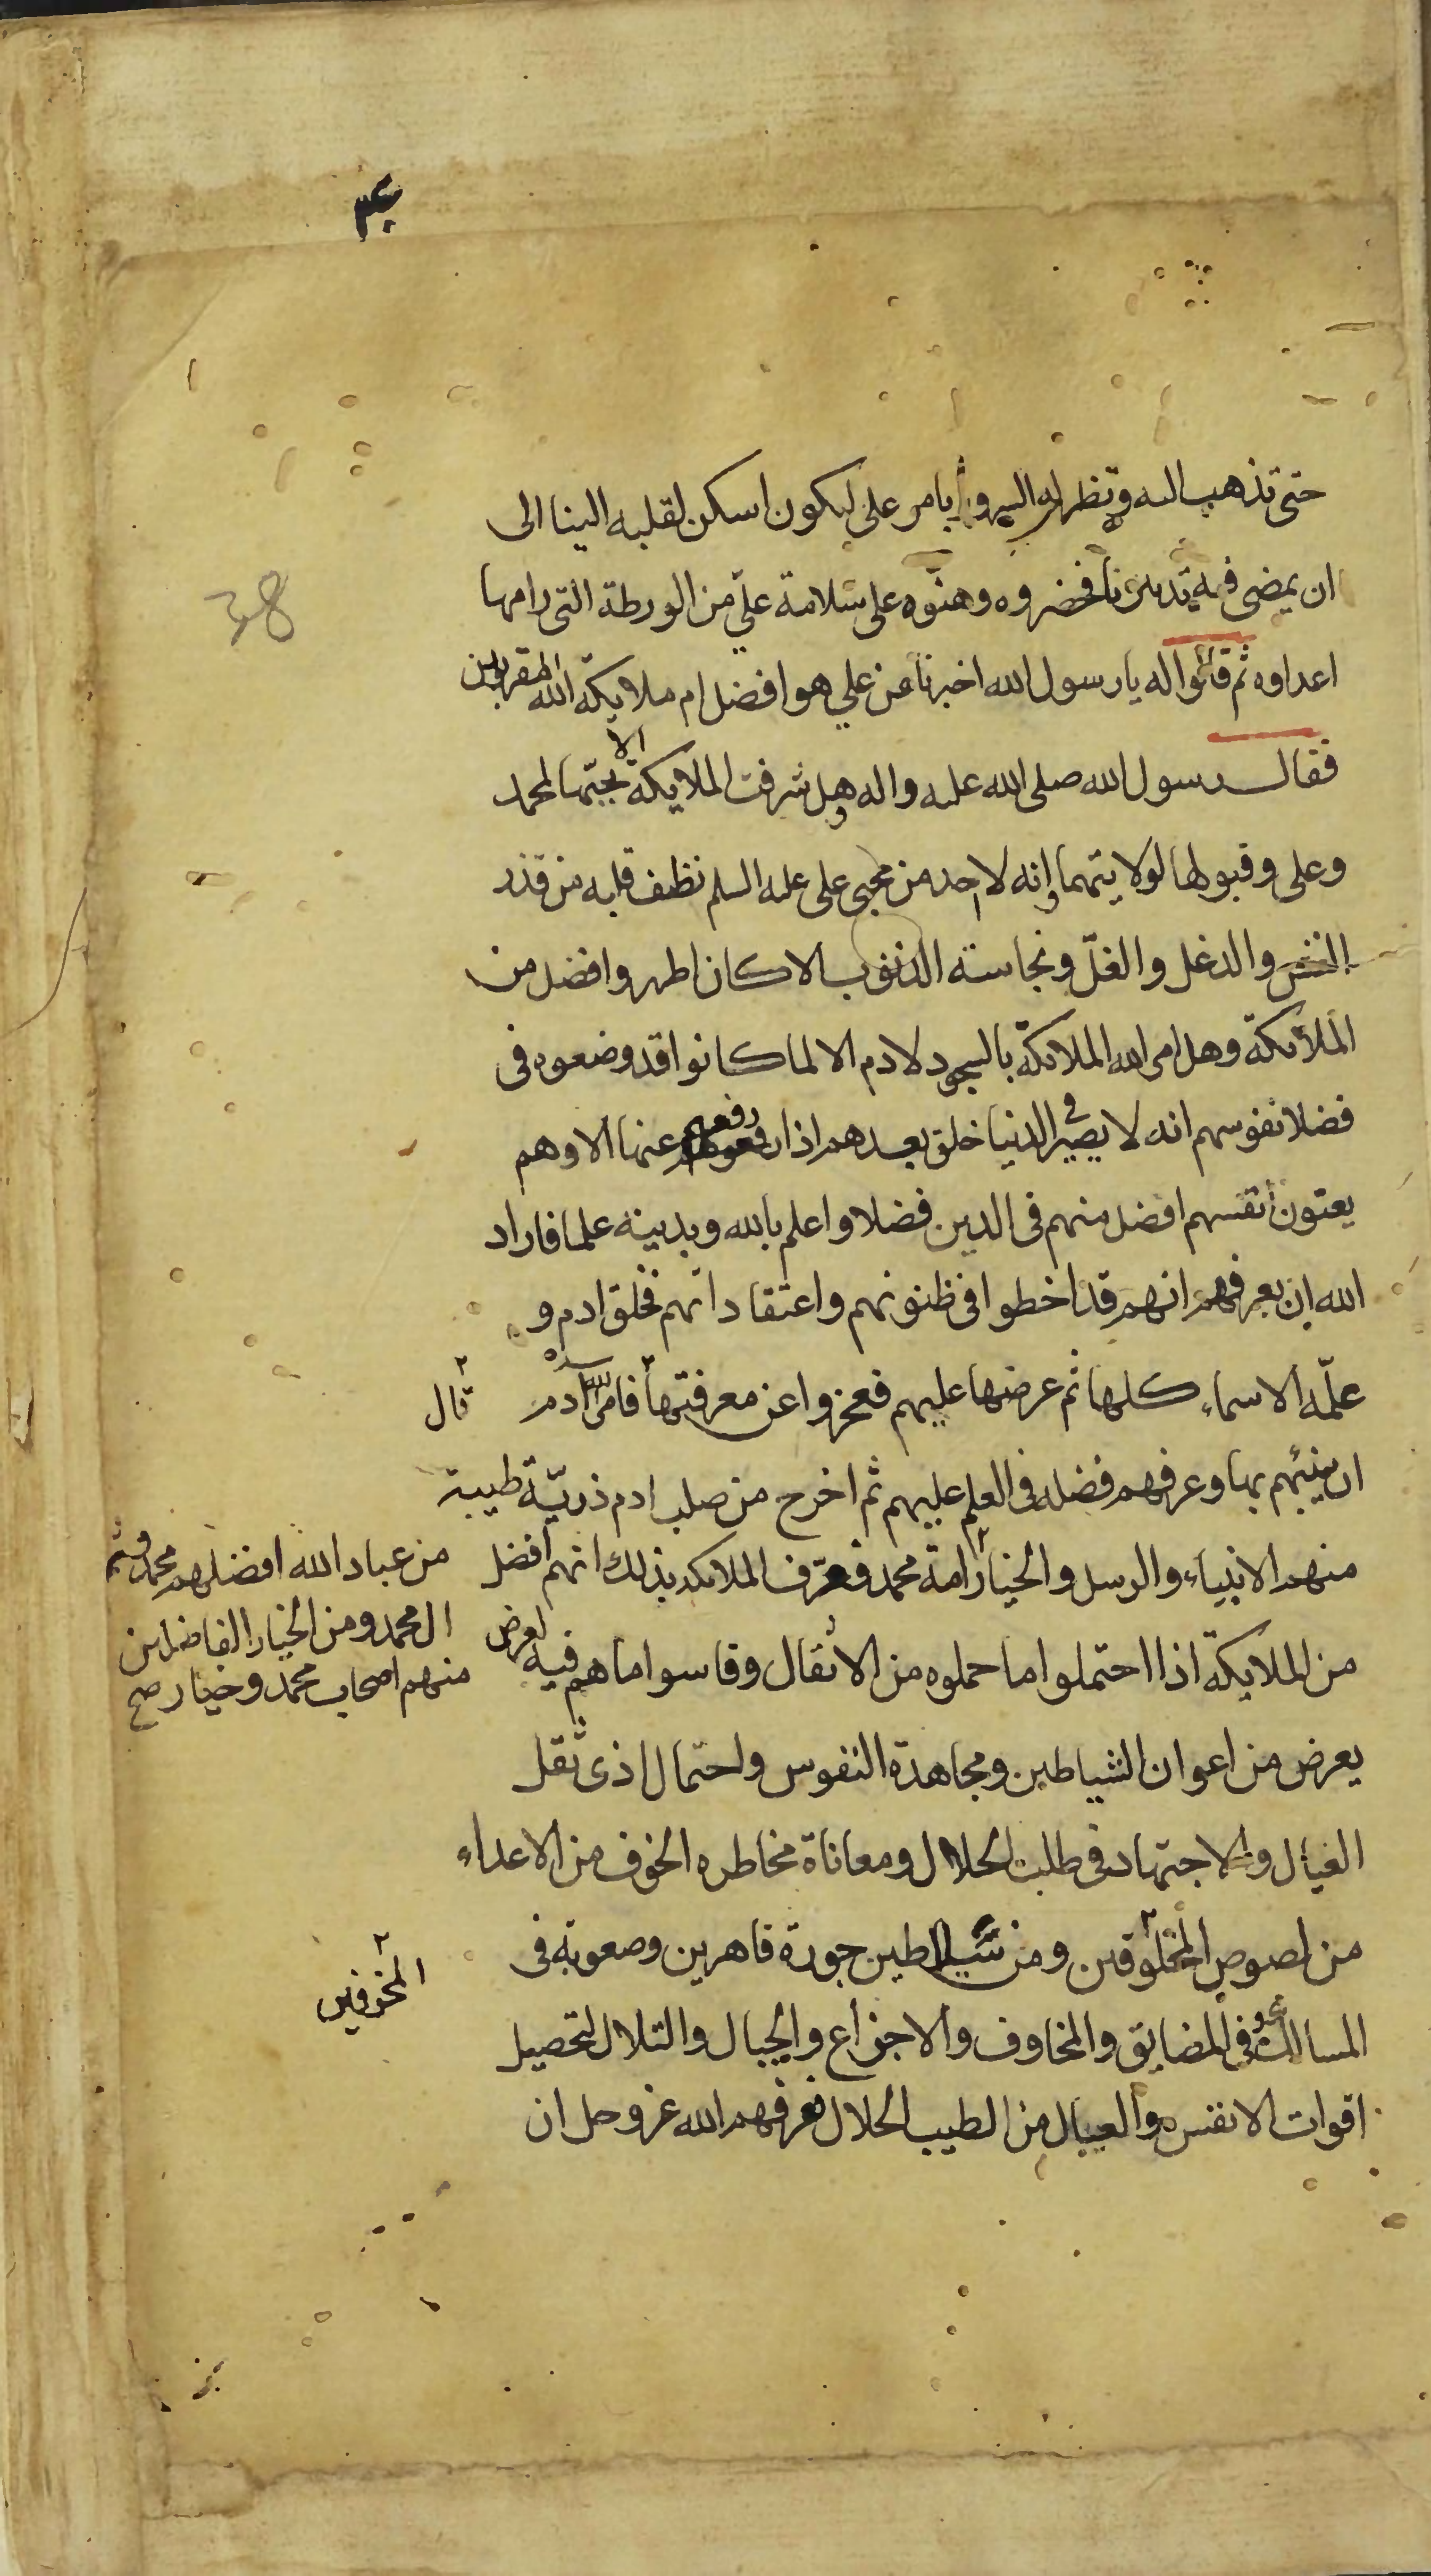 حتى تذهب اليه وتظهر له السرور بامر على ليكون اسكن لقلبه الينا الى
ان يمضى فيه تدبيرنا فحضروه وهنّوه على سلامة علّي من الورطة التى رامها
اعداوه ثم قالوا له يا رسول الله اخبرنا عن علي هو افضل ام ملايكة الله المقربين
فقال رسول الله صلى الله عليه واله وهل شرفت الملايكة الا بحبّها لمحمد
وعلى وقبولها لولايتهما وانه لا احد من محبى على عليه السلم نظف قلبه من قذر
الغش والدغل والغلّ ونجاسة الذنوب الا كان اطهر وافضل من
الملائكة وهل امر الله الملائكة بالسجود لادم الا لما كانوا قد وضعوه فى
فضلا نفوسهم انه لا يصير فى الدنيا خلق بعدهم اذا رفعهم عنها الا وهم
يعنون انفسهم افضل منهم فى الدين فضلا واعلم بالله وبدينه علما فاراد
الله ان يعرفهم انهم قد اخطوا فى ظنونهم واعتقاداتهم فخلق ادم و
علّمه الاسماء كلها ثم عرضها عليهم فعجزوا عن معرفتها فامر الله آدم
قال
ان ينبئهم بها وعرفهم فضله فى العلم عليهم ثم اخرج من صلب ادم ذريّة طيبة
منهم الانبياء والرسل والخيار امة محمد فعرّف الملائكه بذلك انهم افضل
من عباد الله افضلهم محمد وثم
ال محمد ومن الخيار الفاضلين
منهم اصحاب محمد وخيار صح
من الملايكة اذا احتملوا ما حملوه من الاثقال وقاسوا ما هم فيه لعرض
يعرض من اعوان الشياطين ومجاهدة النفوس واحتمال اذى ثقل
العيال والاجتهاد فى طلب الحلال ومعاناة مخاطره الخوف من الاعداء
من لصوص المخلوقين ومن سلاطين جورة قاهرين وصعوبة فى
المخوفين
المسالك فى المضايق والمخاوف والاجزاع والجبال والتلال لتحصيل
اقوات الانفس والعيال من الطيب الحلال فعرفهم الله عز وجل ان
38